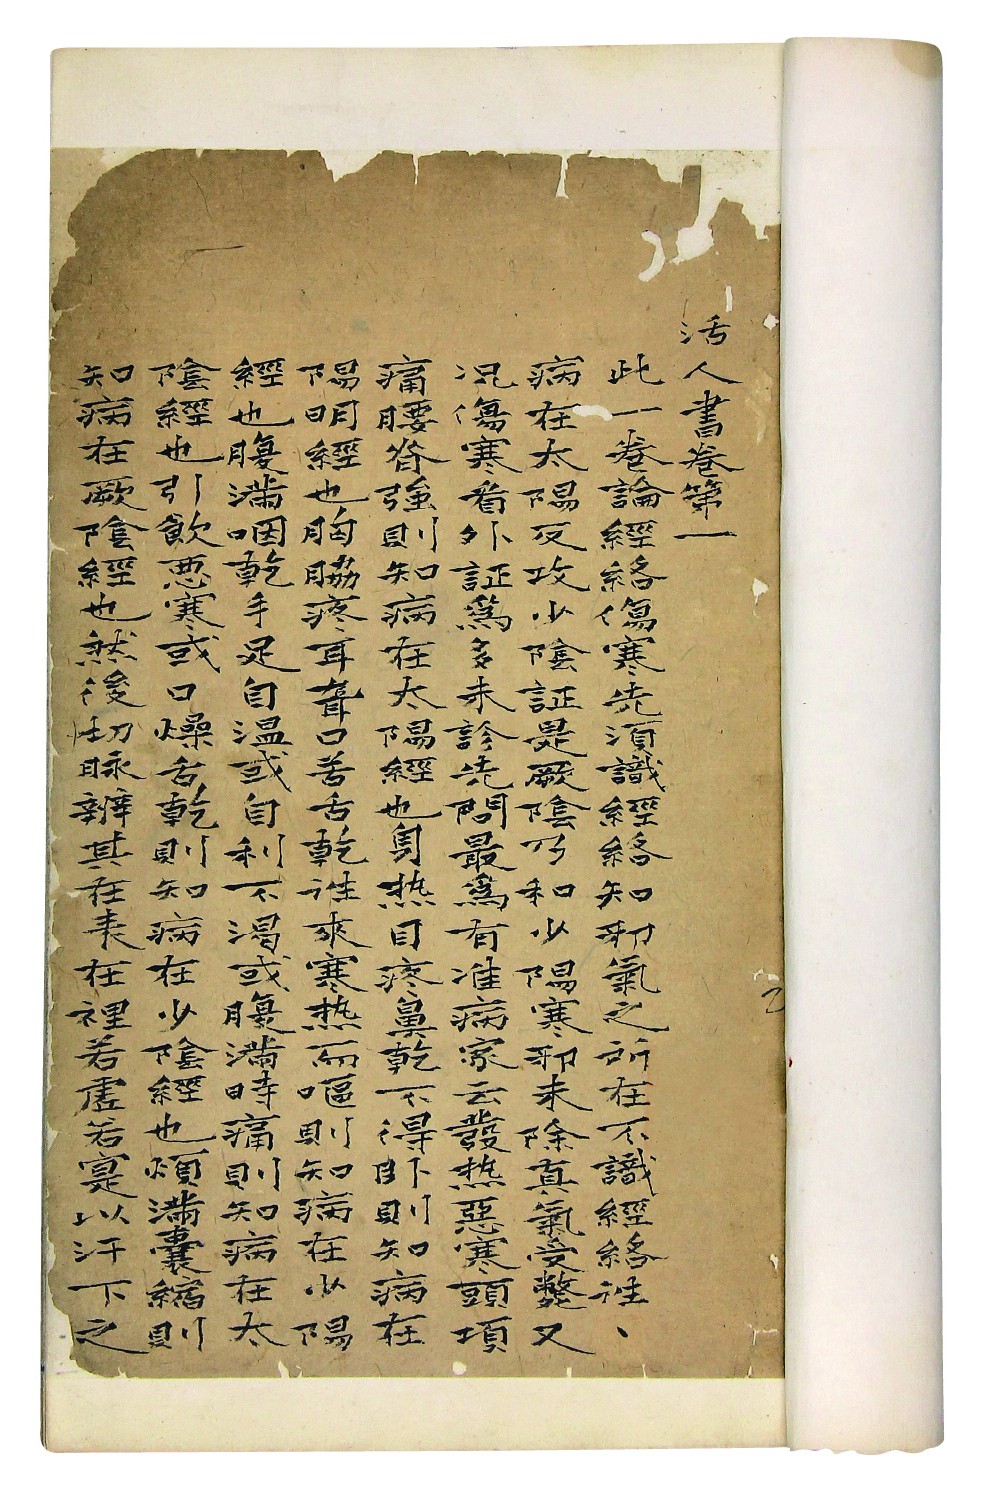 活人書卷第一
此一卷論經絡傷寒先須識經絡知邪氣之所在不識經絡往丶
病在太陽反攻少陰証是厥陰乃和少陽寒邪未除真氣受斃又
况傷寒看外証爲多未診先問最爲有准病家云發热惡寒頭項
痛腰脊強則知病在太陽經也身热目疼鼻乾不得卧則知病在
陽明經也胸脇疼耳聋口苦舌乾往來寒热而嘔則知病在少陽
經也腹滿咽乾手足自温或自利不渴或腹滿時痛則知病在太
陰經也引飲悪寒或口燥舌乾則知病在少陰經也煩滿囊縮則
知病在厥陰經也然後切脉辨其在表在裡若虚若寔以汗下之